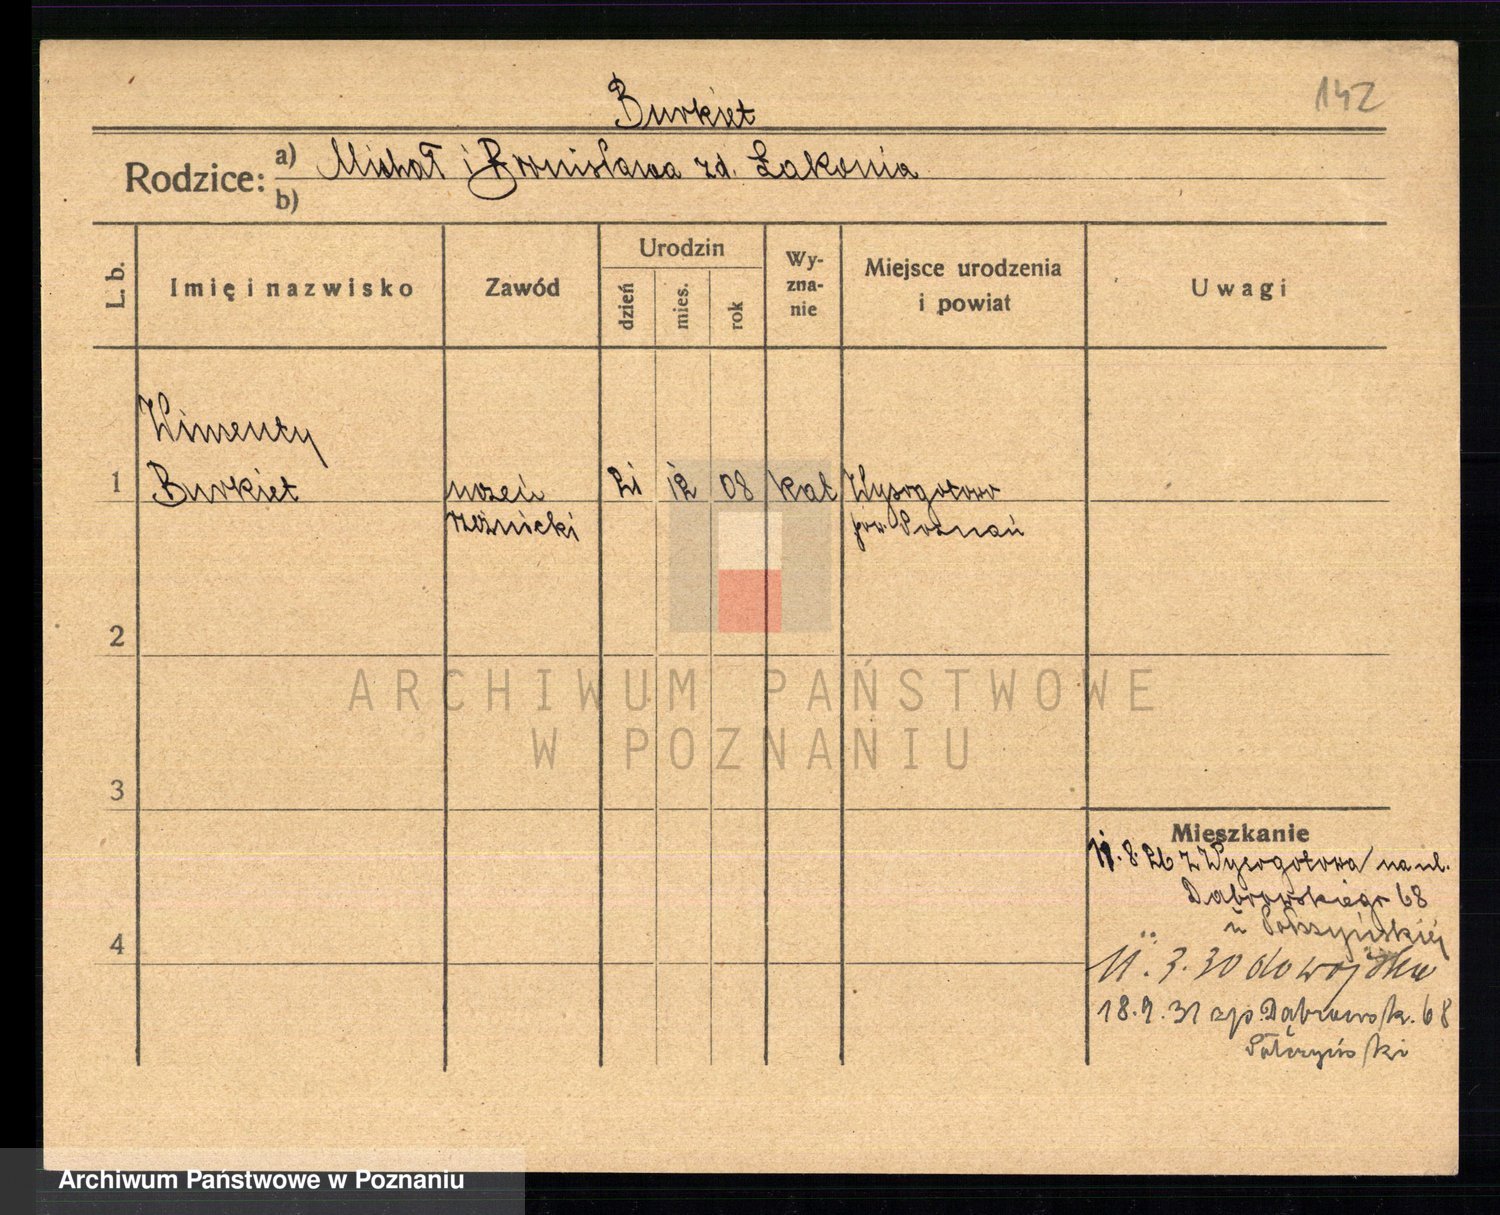 142
Burkiet
Rodzice: a) Michał i Bronisława zd. Łakonia
b)
L. b. Imię i nazwisko Zawód Urodzin dzień mies. rok Wy-zna-nie Miejsce urodzenia i powiat Uwagi
Burkiet
1 uczeń 21 12 08 kat Wysogotowo
rzeźnicki pow. Poznań
2
3
4
Mieszkanie
11.8.26 z Wysogotowa na ul.
Dąbrowskiego 68
u
11.3.30 do wojska
18.9.31 Dąbrowsk. 68
ARCHIWUM PAŃSTWOWE
W POZNANIU
Archiwum Państwowe w Poznaniu